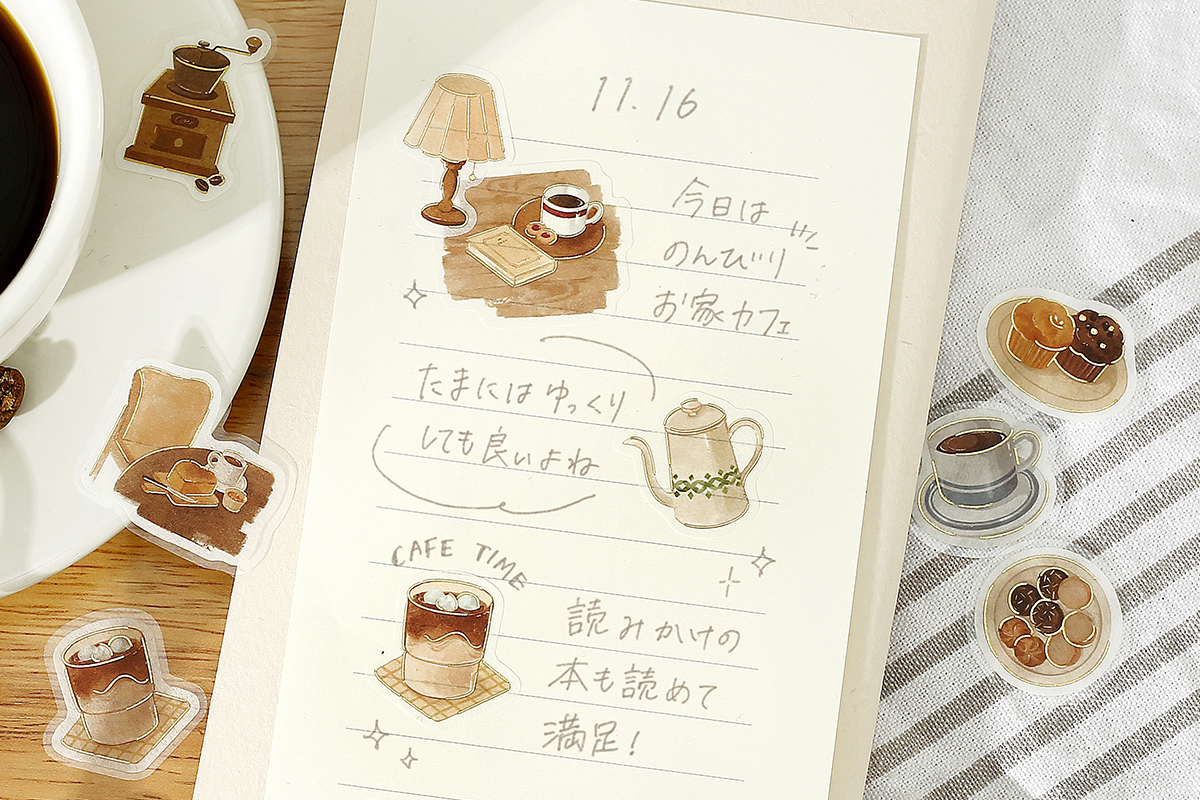 11.16
今日は
のんびり
お家カフェ
たまにはゆっくり
しても良いよね
CAFE TIME
読みかけの
本も読めて
満足!